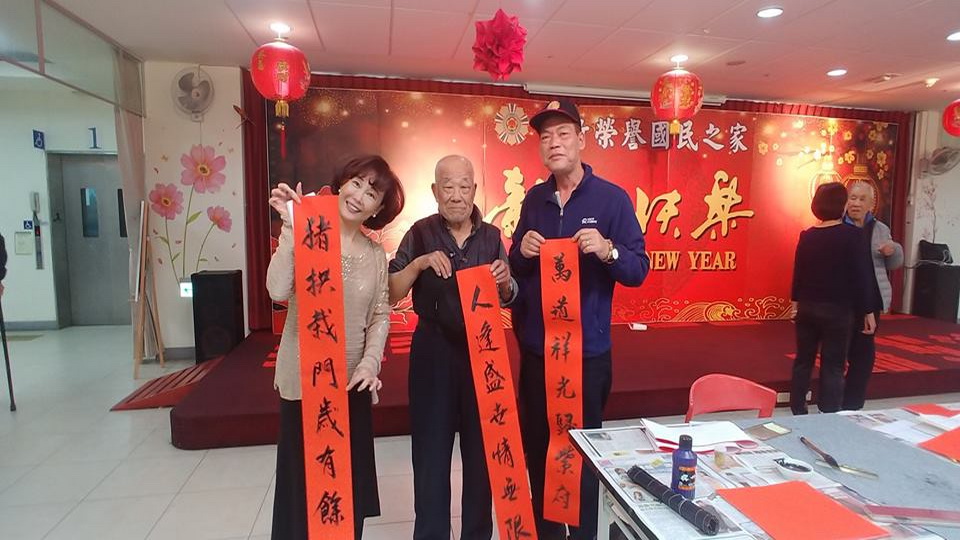 榮譽國民之家
快樂
NEW YEAR
1
猪拱栽門歲有餘
人逢盛世情無限
萬道祥光歸紫府